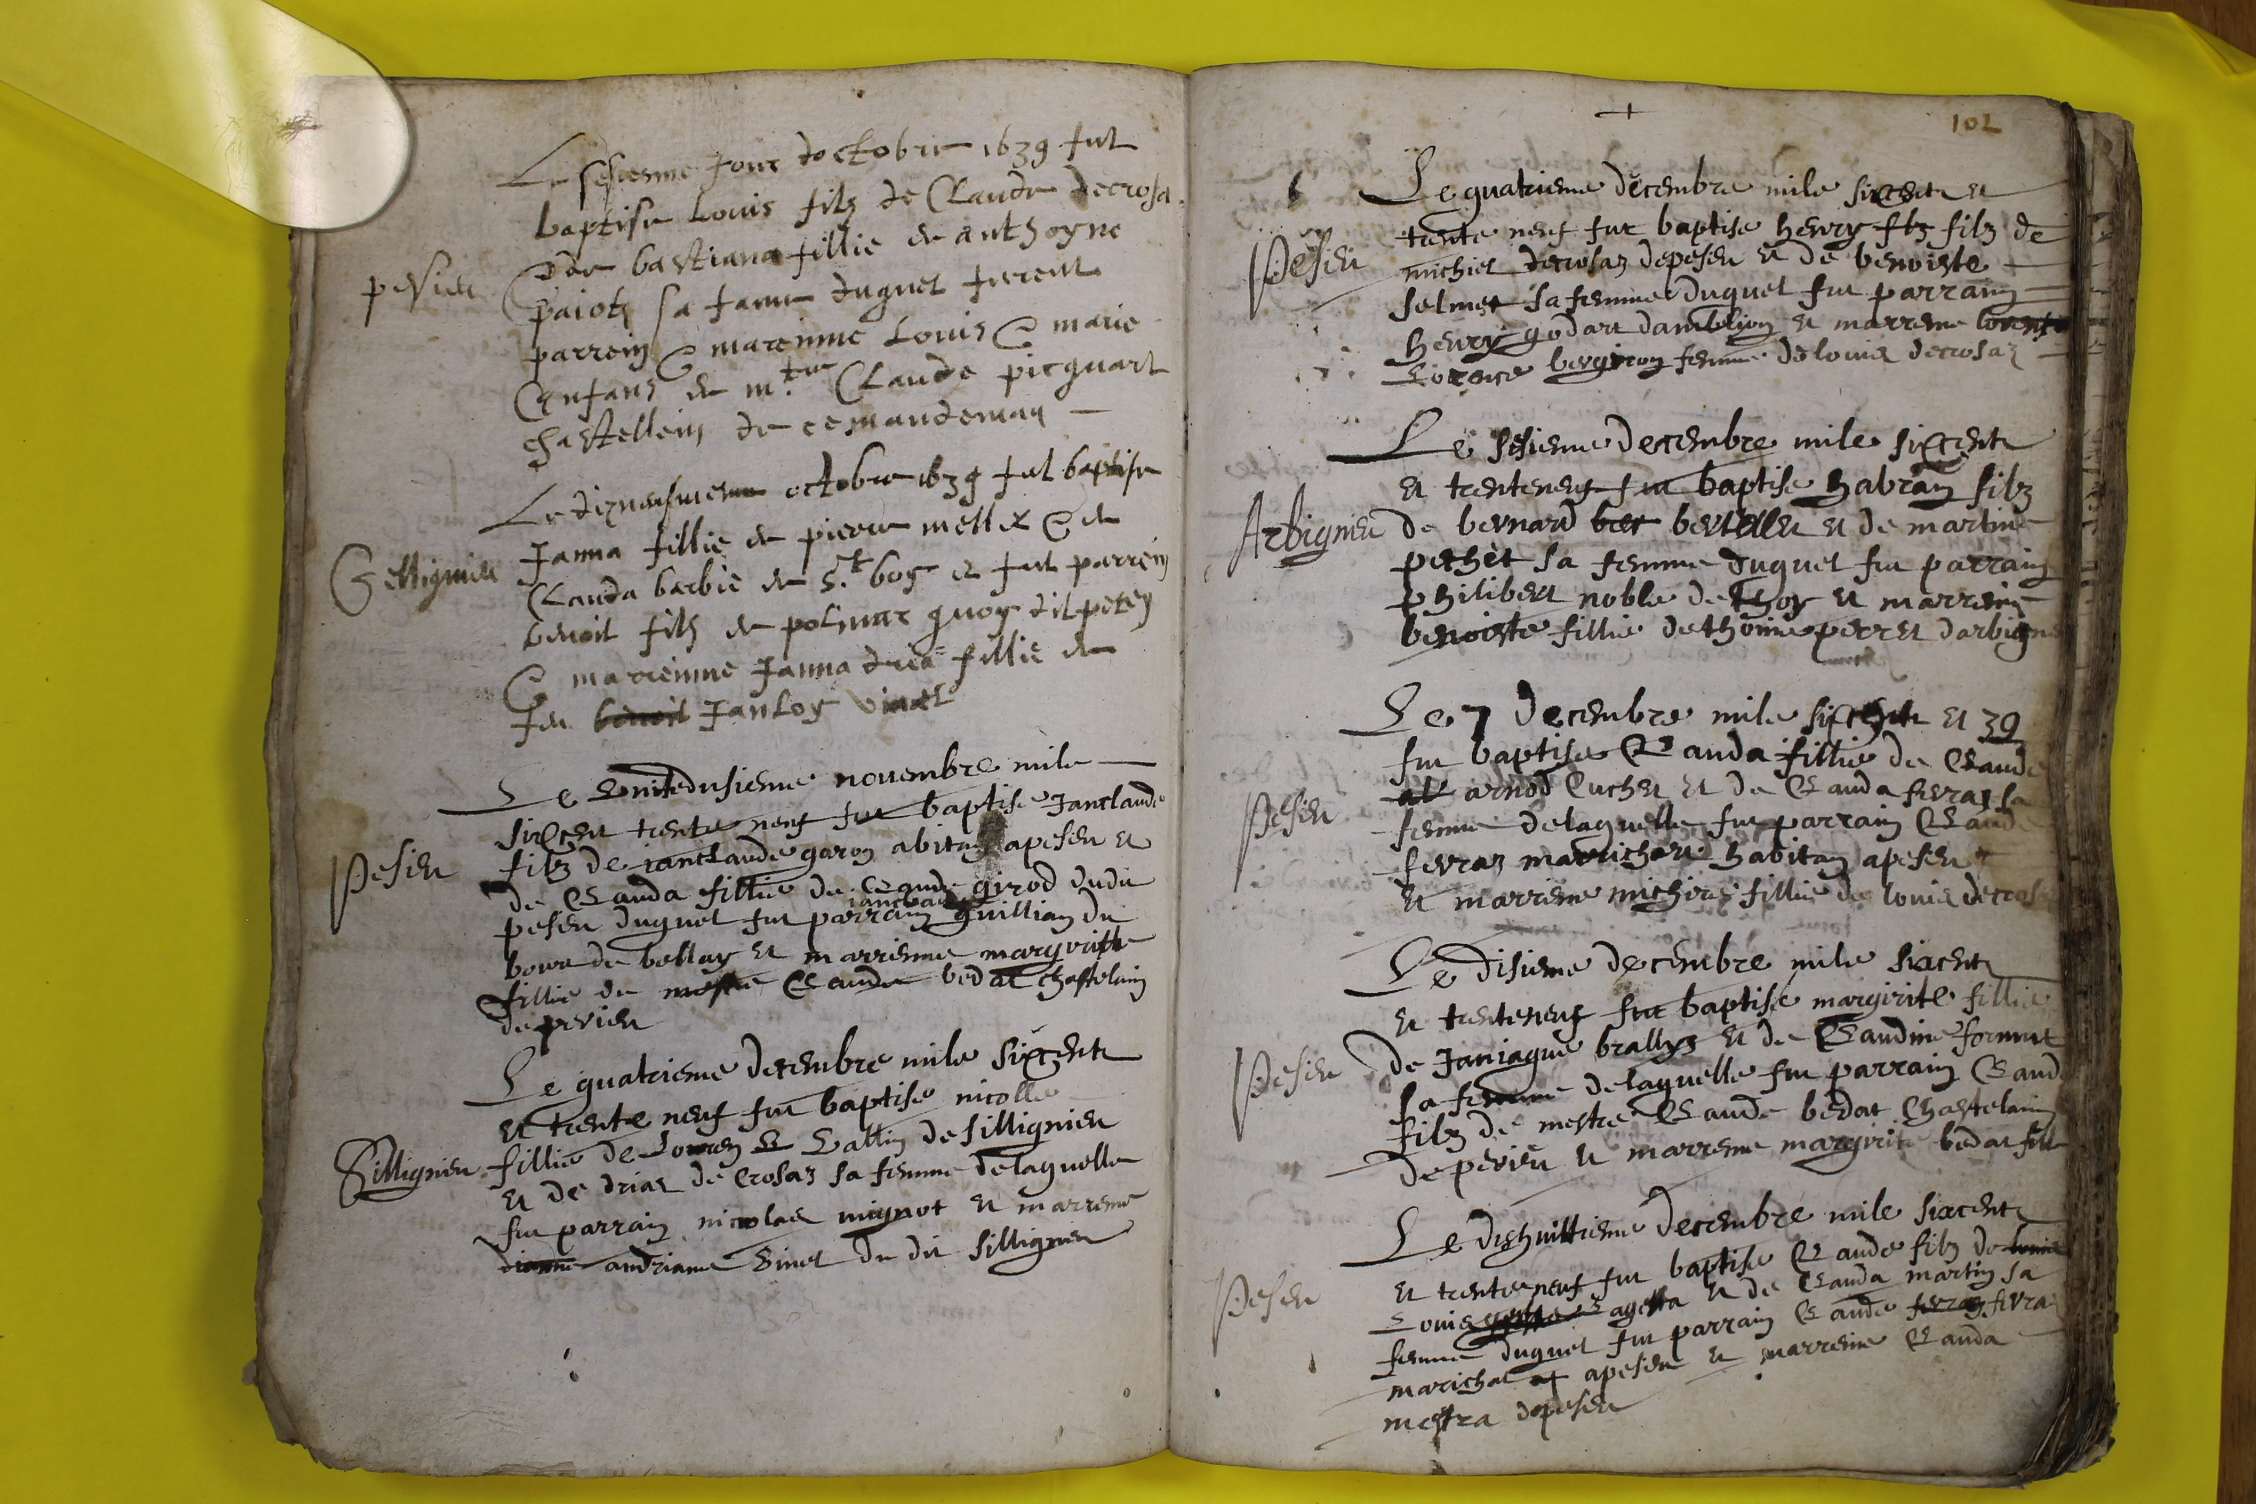 Le sesiesme Jour doctobre 1639 fut
baptise Louis filz de Claude decrosa
pesieu
& de bastiana fillie de anthoyne
paiotz sa fame duquel furent
parrein & mareinne Louis & marie
Enfans de mtre Claude picquart
chastellein de ce mandeman
Le diznufvieme octobre 1639 fut baptise
Janna fillie de pierre mettex & de
Cellignieu
Clauda barbie de St boy & fut parrein
benoit filz de polimar guoy dit petey
& marreinne Janna fillie de
feu benoit Janloy vinet
Le vuitedusieme novembre mile
sixcent trente neuf fut baptise Janclaude
Pesieu
filz de ianclaude garon abitan apesieu et
de Clauda fillie de Claude girod dudit
pesieu duquel fut parrain ianclaude guillian du
bourc de bellay et marrenne margvritte
fillie de mestre Claude bedat chastelain
de pevieu
Le quatrieme decembre mile sixcent
et trente neuf fut baptise nicolle
Sillignieu
fillie de Louren Callin de sillignieu
et de driae de Crosaz sa femme de laquelle
fut parrain nicolas mignot et marrenne
dianne andriane vinet du dit sillignieu
+
102
6 Le quatrieme decembre mile sixcent et
trente neuf fut baptise henry flz filz de
Pesieu
michiel decrosaz depesieu et de benoiste
selmet sa femme duquel fut parrain
henry godart damblion et marrenne
Lorence bergeron femme de louis decrosaz
Le sesieme decembre mile sixcent
et trenteneuf fut baptise habran filz
Arbignieu
de bernard ber bertellet et de martine
pethet sa femme duquel fut parrain
philibert noble de thoy et marrenne
benoiste fillie dethoinne perret darbigne
Le 7 decembre mile sixcent et 39
fut baptise Clauda fillie de Claude
Pesieu
al arnod Cuchet et de Clauda fevraz sa
femme de laquelle fut parrain Claude
fevraz marichau habitan apesieu
et marrenne michire fillie de louis decrosa
Le disieme decembre mile sixcent
et trenteneuf fut baptise margirite fillie
Pesieu
de Janiaque brallyz et de Claudine fornut
sa femme de laquelle fut parrain Claude
filz de mestre Claude bedat Chastelain
de pevieu et marrenne margirite bedat fille
Le dishuittieme decembre mile sixcent
et trente neuf fut baptise Claude filz de louis
Pesieu
Louis gagetta et de Clauda martin sa
femme duquel fut parrain Claude fevraz fevra
marichal apesieu et marrenne Clauda
mestra depesieu